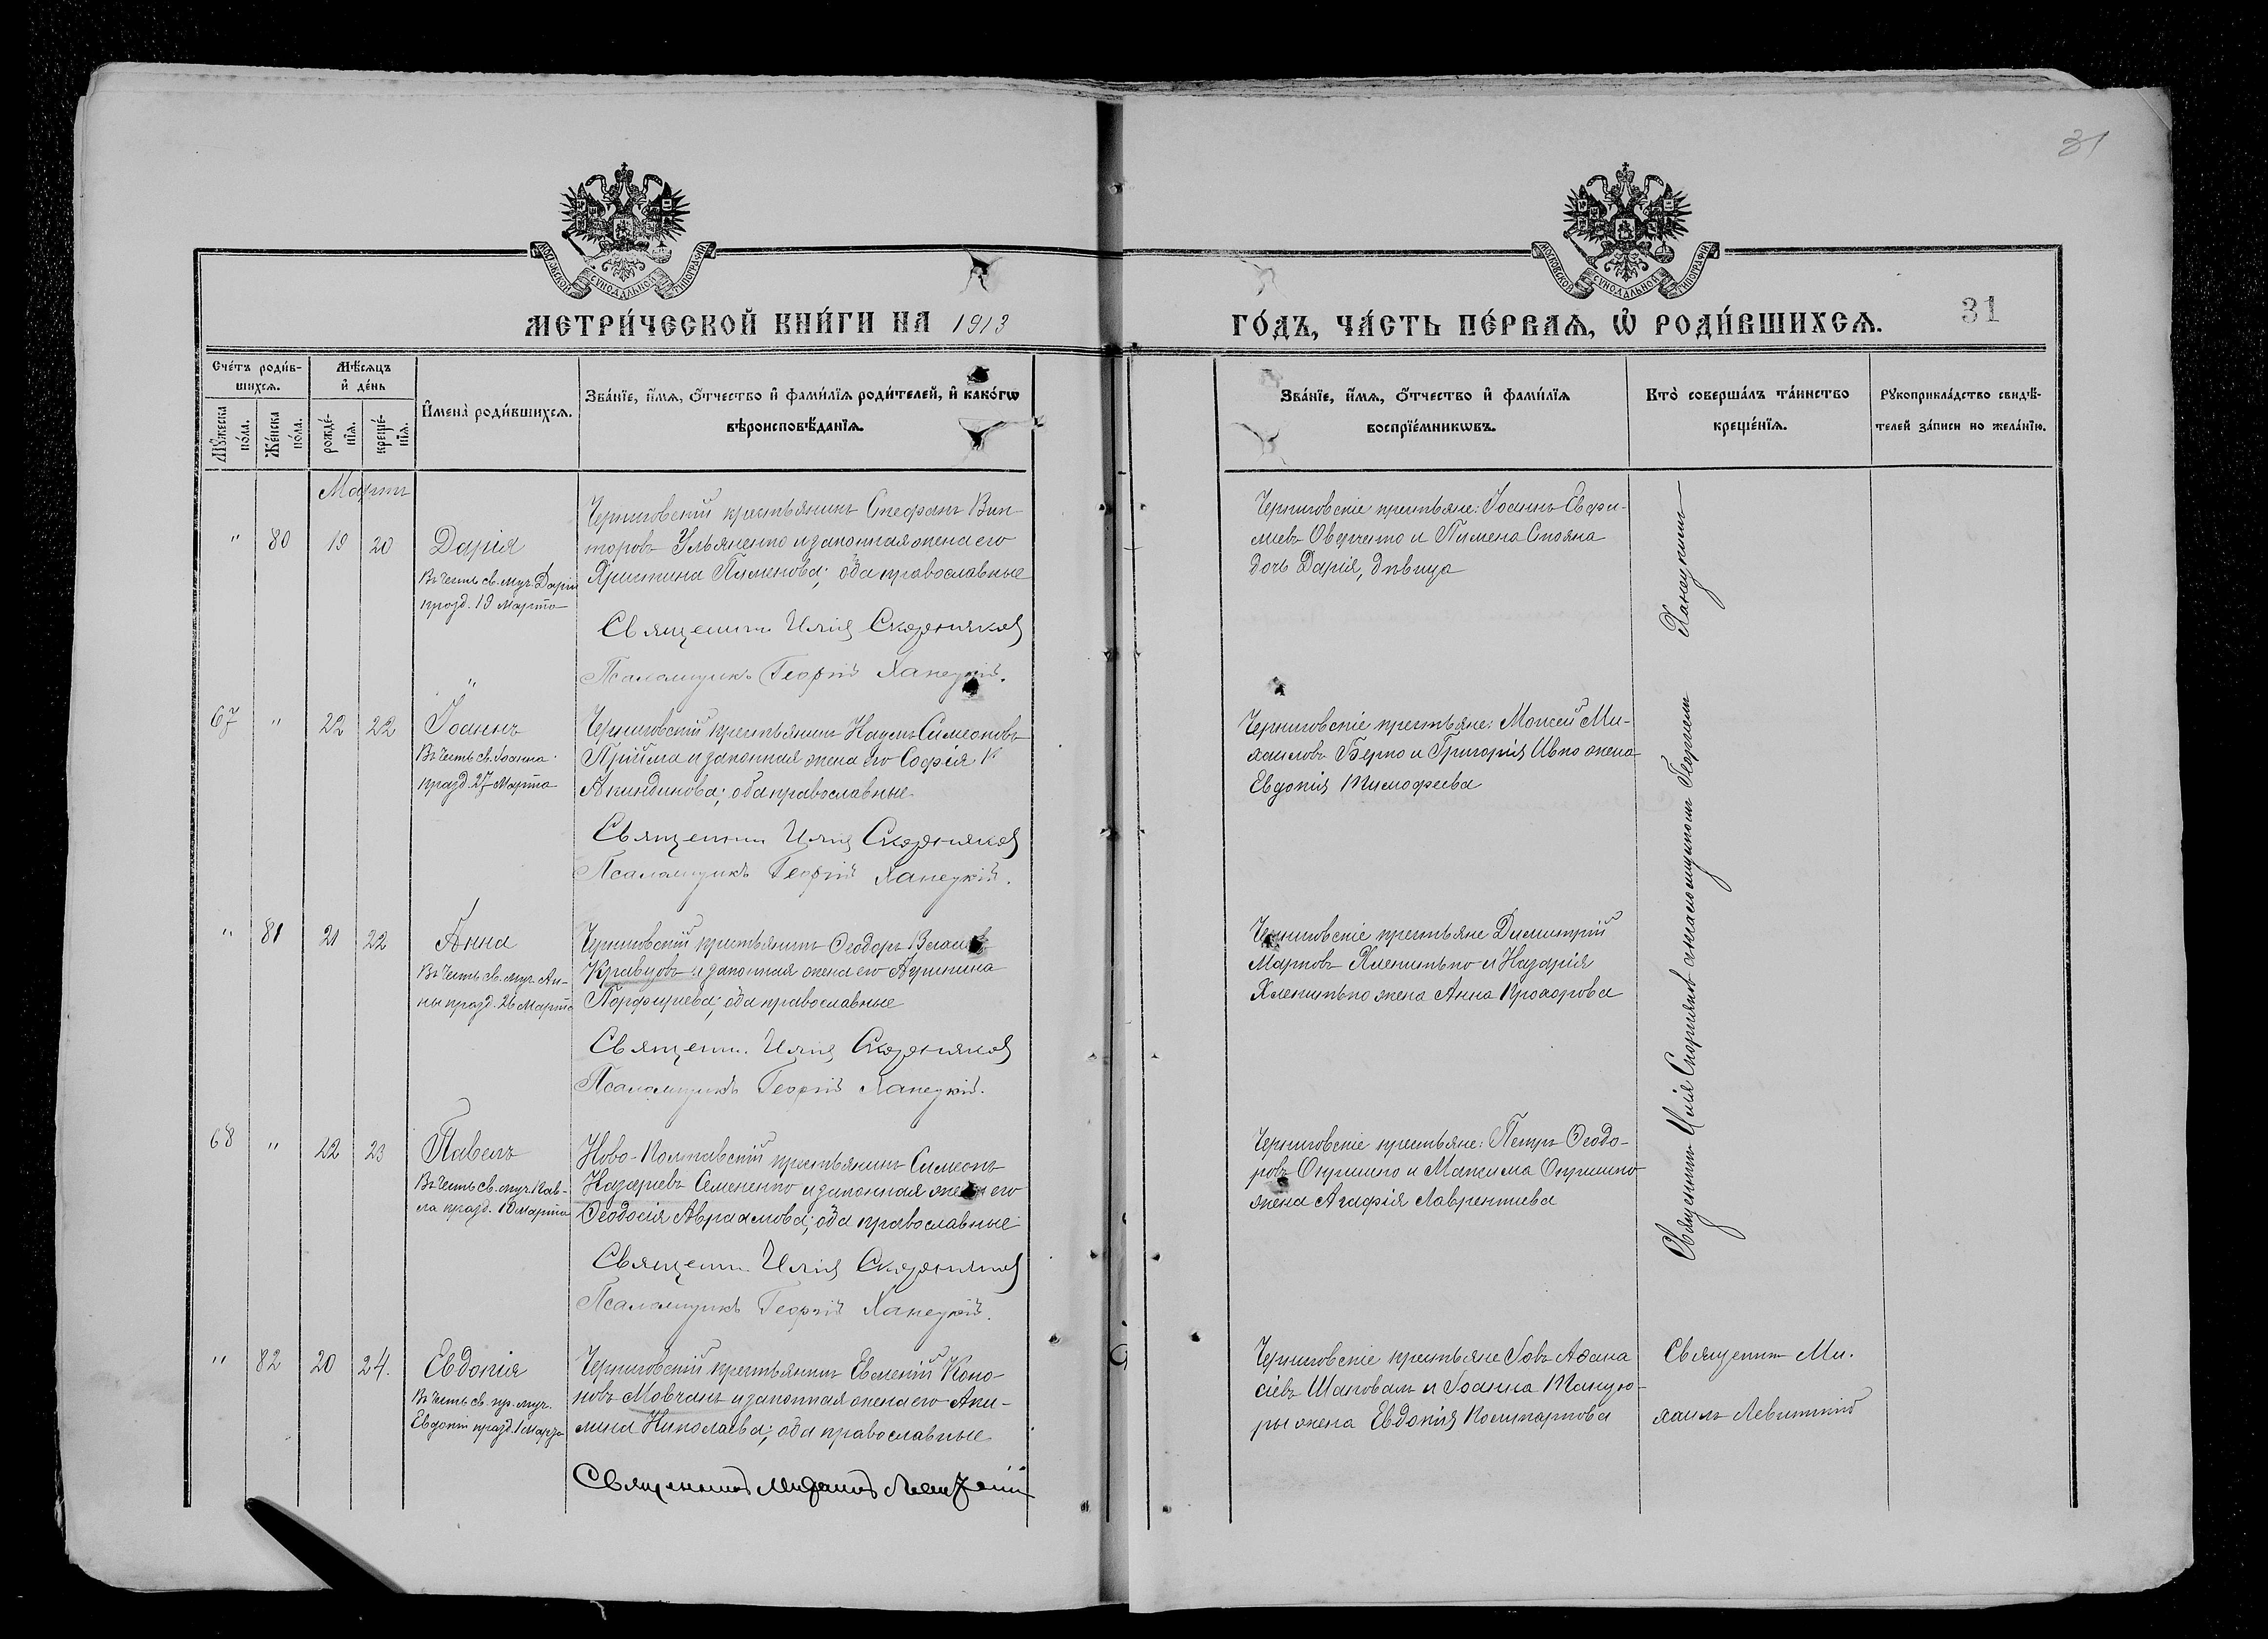 31
МОСКОВСКОЙ СѴНОДАЛЬНОЙ ТИПОГРАФІИ
МОСКОВСКОЙ СѴНОДАЛЬНОЙ ТИПОГРАФІИ
МЕТРИ́ЧЕСКОЙ КНИ́ГИ НА 1913
ГО́ДЪ, ЧА́СТЬ ПЕ́РВАѦ, Ѡ҆ РОДИ́ВШИХСѦ.
31
Сче́тъ роди́в-
шихсѧ.
Мꙋ́жеска по́ла.
Же́нска по́ла.
Мѣ́сѧцъ
и҆ де́нь
рожде́-
нїѧ.
креще́-
нїѧ.
И҆мена̀ роди́вшихсѧ.
Зва́нїе, и҆́мѧ, ѻ҆́тчество и҆ фами́лїѧ роди́телей, и҆ како́гѡ
вѣроисповѣ́данїѧ.
Зва́нїе, и҆́мѧ, ѻ҆́тчество и҆ фами́лїѧ
воспрїе́мникѡвъ.
Кто̀ соверша́лъ та́инство
креще́нїѧ.
Рꙋкоприкла́дство свидѣ́-
телей за́писи по жела́нїю.
Мартъ
" 80 19 20
Дарія
Въ честь св. муч. Даріи
празд. 19 Марта
Черниговскій крестьянинъ Стефанъ Вик-
торовъ Ульяненко и законная жена его
Христина Пименова; оба православные
Священникъ Илія Скорняковъ
Псаломщикъ Георгій Ханецкій.
Черниговскіе крестьяне: Іоаннъ Евфи-
міевъ Оверченко и Пимена Стояна
дочь Дарія, дѣвица
67 " 22 22
Іоаннъ
Въ честь св. Іоанна
празд. 27 Марта
Черниговскій крестьянинъ Наумъ Симеоновъ
Прийма и законная жена его Софія
Акиндинова; оба православные
Священникъ Илія Скорняковъ
Псаломщикъ Георгій Ханецкій.
Черниговскіе крестьяне: Моисей Ми-
хаиловъ Берко и Григорія Ивко жена
Евдокія Тимофеева
" 81 21 22
Анна
Въ честь св. муч. Ан-
ны празд. 26 Марта
Черниговскій крестьянинъ Ѳеодоръ
Кравцовъ и законная жена его
Порфиріева; оба православные
Священн. Илія Скорняковъ
Псаломщикъ Георгій Ханецкій.
Черниговскіе крестьяне Димитрій
Марковъ и Назарія
жена Анна Прохорова
68 " 22 23
Павелъ
Въ честь св. муч. Пав-
ла празд. 10 Марта
Ново-Полтавскій крестьянинъ Симеонъ
Назаріевъ Семененко и законная жена его
Ѳеодосія Авраамова; оба православные
Священн. Илія Скорняковъ
Псаломщикъ Георгій Ханецкій.
Черниговскіе крестьяне: Петръ Ѳеодо-
ровъ Охрименко и Максима Охрименко
жена Агафія Лаврентіева
Священникъ Илія Скорняковъ съ псаломщикомъ Георгіемъ Ханецкимъ
" 82 20 24.
Евдокія
Въ честь св. пр. муч.
Евдокіи празд. 1 Марта
Черниговскій крестьянинъ Евменій Коно-
новъ Мовчанъ и законная жена его Аки-
лина Николаева; оба православные
Священникъ Михаилъ Левитскій
Черниговскіе крестьяне Іовъ Аѳана
сіевъ Шаповалъ и Іоанна Танцю-
ры жена Евдокія Поликарпова
Священникъ Ми-
хаилъ Левитскій